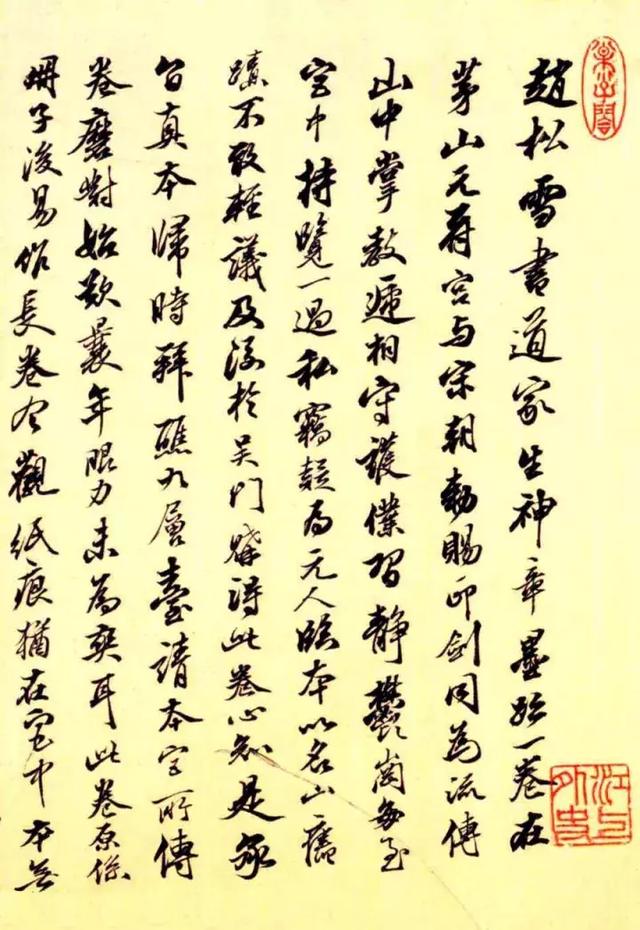 趙松雪書道家生神章墨跡一卷在
茅山元符宮与宋朝勅賜印劍同為流傳
山中掌教遞相守護僕習靜鬱崗每至
宮中持覽一過私竊疑為元人臨本以名山舊
蹟不敢輕議及後於吳門購得此卷心知是承
旨真本歸時拜醮九層臺請本宮所傳
卷磨對始歎曩年眼力未為爽耳此卷原係
冊子後易作長卷今觀紙痕猶在宮中本無
江上外史